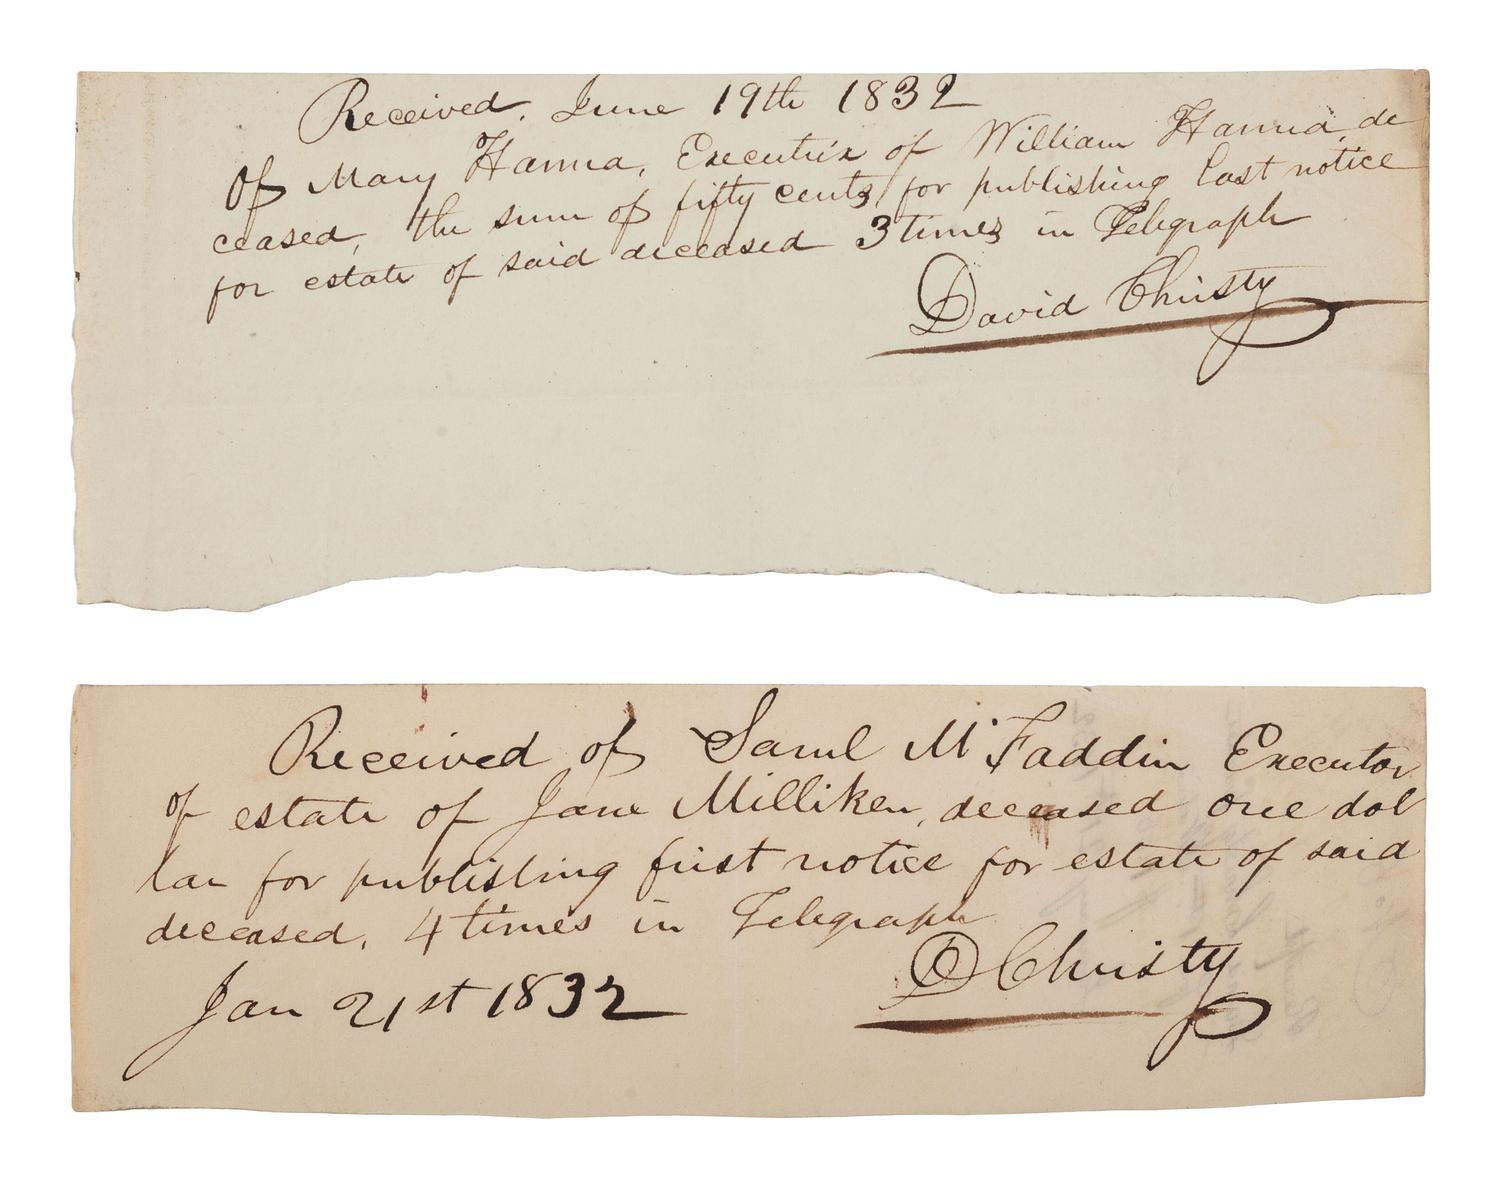 Received, June 19th 1832
Of Mary Hanna, Executrix of William Hanna, de
ceased, the sum of fifty cents, for publishing last notice
for estate of said deceased 3 times in Telegraph
David Christy
Received of Saml McFaddin Executor
of estate of Jane Milliken, deceased one dol
lar for publishing first notice for estate of said
deceased, 4 times in Telegraph
D Christy
Jan 21st 1832